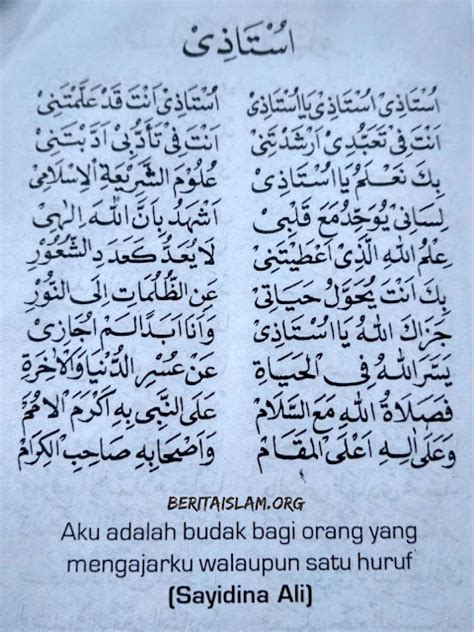 اُسْتَاذِىْ
اُسْتَاذِىْ اُسْتَاذِىْ يَا اُسْتَاذِىْ اُسْتَاذِىْ اَنْتَ قَدْ عَلَّمْتَنِىْ
اَنْتَ فِى تَعَبُّدِى اَرْشَدْتَنِىْ اَنْتَ فِى تَأَدُّبِىْ اَدَّبْتَنِىْ
بِكَ نَعْلَمُ يَا اُسْتَاذِىْ عُلُوْمَ الشَّرِيْعَةِ الْاِسْلَامِى
لِسَانِىْ يُوَحِّدُ مَعَ قَلْبِىْ اَشْهَدُ بِاَنَّ اللهَ اِلٰهِىْ
عِلْمُ اللهِ الَّذِىْ اَعْطَيْتَنِىْ لَا يُعَدُّ كَعَدَدِ الشُّعُوْرْ
بِكَ اَنْتَ يُحَوَّلُ حَيَاتِىْ عَنِ الظُّلُمَاتِ اِلَى النُّوْرْ
جَزَاكَ اللهُ يَا اُسْتَاذِىْ وَاَنَا اَبَدًا لَمْ اُجَازِىْ
يَسَّرَ اللهُ فِى الْحَيَاةِ عَنْ عُسْرِ الدُّنْيَا وَالْاٰخِرَةِ
فَصَلَاةُ اللهِ مَعَ السَّلَامْ عَلَى النَّبِىْ بِهِ اَكْرَمَ الْاُمَمْ
وَعَلَى اٰلِهِ اَعْلَى الْمَقَامْ وَاَصْحَابِهِ صَاحِبِ الْكِرَامْ
BERITAISLAM.ORG
Aku adalah budak bagi orang yang
mengajarku walaupun satu huruf
(Sayidina Ali)